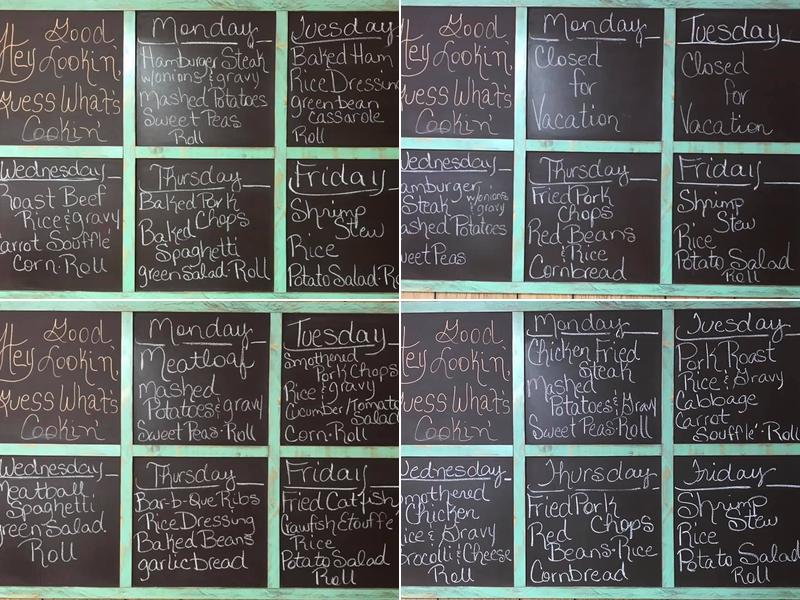 Good
Hey Lookin',
Guess What's
Cookin'
Monday
Hamburger Steak
w/onions & gravy
Mashed Potatoes
Sweet Peas
Roll
Tuesday
Baked Ham
Rice Dressing
green bean
casserole
Roll
Wednesday
Roast Beef
Rice & gravy
Carrot Soufflé
Corn · Roll
Thursday
Baked Pork
Chops
Baked
Spaghetti
green Salad · Roll
Friday
Shrimp
Stew
Rice
Potato Salad · R
Good
Hey Lookin',
Guess What's
Cookin'
Monday
Closed
for
Vacation
Tuesday
Closed
for
Vacation
Wednesday
amburger w/onions
Steak & gravy
ashed Potatoes
weet Peas
Thursday
Fried Pork
Chops
Red Beans
& Rice
Cornbread
Friday
Shrimp
Stew
Rice
Potato Salad
Roll
Good
Hey Lookin',
Guess What's
Cookin'
Monday
Meatloaf
Mashed
Potatoes & gravy
Sweet Peas · Roll
Tuesday
Smothered
Pork Chops
Rice & gravy
Cucumber/Tomato
Salad
Corn · Roll
Wednesday
Meatball
Spaghetti
green Salad
Roll
Thursday
Bar-b-Que Ribs
Rice Dressing
Baked Beans
garlic bread
Friday
Fried Catfish
Crawfish Etouffe'
Rice
Potato Salad
Roll
Good
Hey Lookin',
Guess What's
Cookin'
Monday
Chicken Fried
Steak
Mashed
Potatoes & Gravy
Sweet Peas · Roll
Tuesday
Pork Roast
Rice & Gravy
Cabbage
Carrot
Soufflé · Roll
Wednesday
mothered
Chicken
ice & Gravy
Brocolli & Cheese
Roll
Thursday
Fried Pork
Chops
Red
Beans · Rice
Cornbread
Friday
Shrimp
Stew
Rice
Potato Salad
Roll